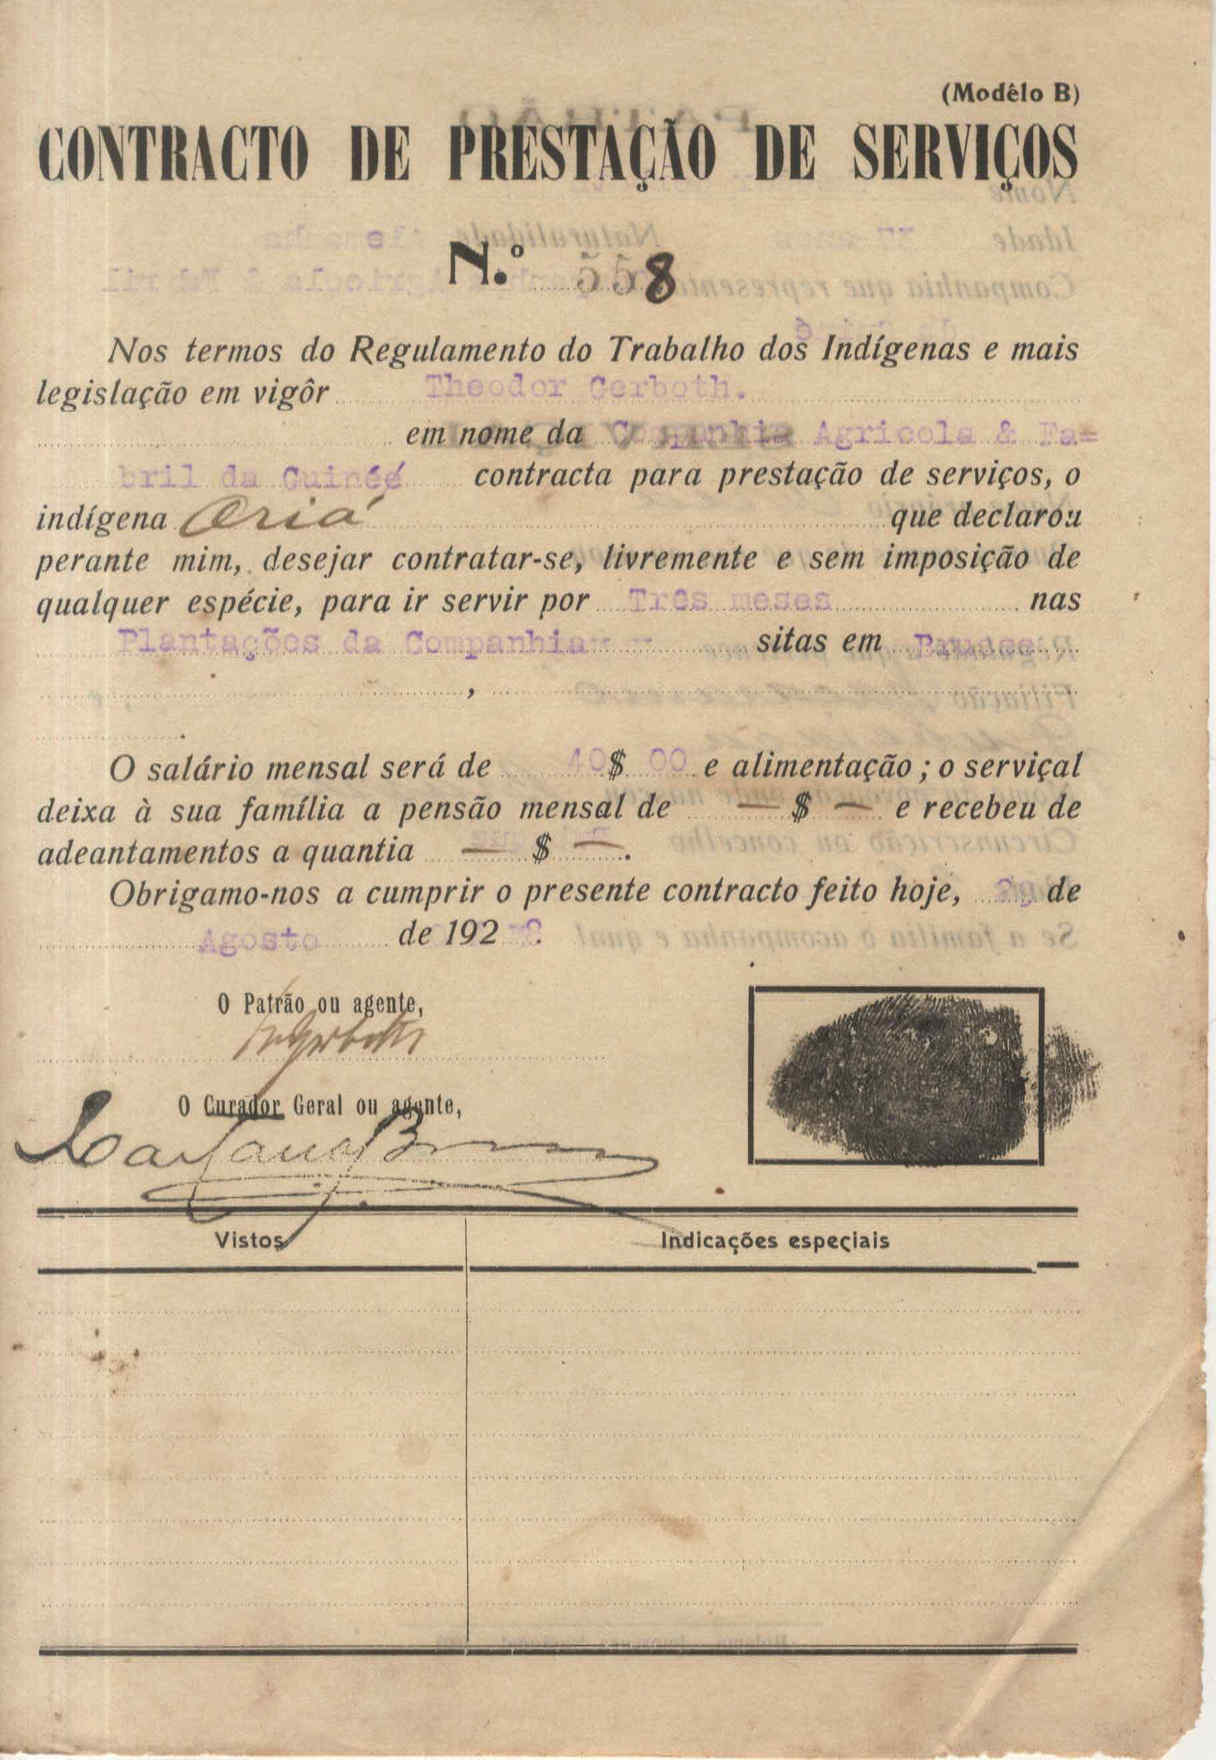 (Modêlo B)
CONTRACTO DE PRESTAÇÃO DE SERVIÇOS
N.º 558
Nos termos do Regulamento do Trabalho dos Indígenas e mais
legislação em vigôr Theodor Gerboth.
em nome da Companhia Agricola & Fa=
bril da Guiné contracta para prestação de serviços, o
indígena que declarou
perante mim, desejar contratar-se, livremente e sem imposição de
qualquer espécie, para ir servir por Três meses nas
Plantações da Companhia sitas em Brudce
,
.
O salário mensal será de 40$00 e alimentação; o serviçal
deixa à sua família a pensão mensal de — $ — e recebeu de
adeantamentos a quantia — $ — .
Obrigamo-nos a cumprir o presente contracto feito hoje, de
Agosto de 192
O Patrão ou agente,
O Curador Geral ou agente,
Vistos Indicações especiais